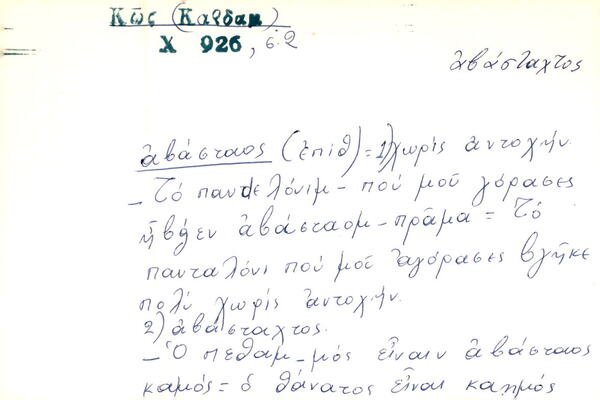 Κῶς (Καρδαμ
Χ 926, σ.2
ἀβάσταχτος
ἀβάσταος (ἐπίθ) = 1) χωρίς ἀντοχήν.
- Τό παντελόνιμ - πού μοῦ γόρασες
ἤβγεν ἀβάσταομ - πρᾶμα = Τό
πανταλόνι πού μοῦ ἀγόρασες βγῆκε
πολύ χωρίς ἀντοχήν.
2) ἀβάσταχτος.
- Ὁ πεθαμ - μός εἶναιν ἀβάσταος
καμός = ὁ θάνατος εἶναι καημός